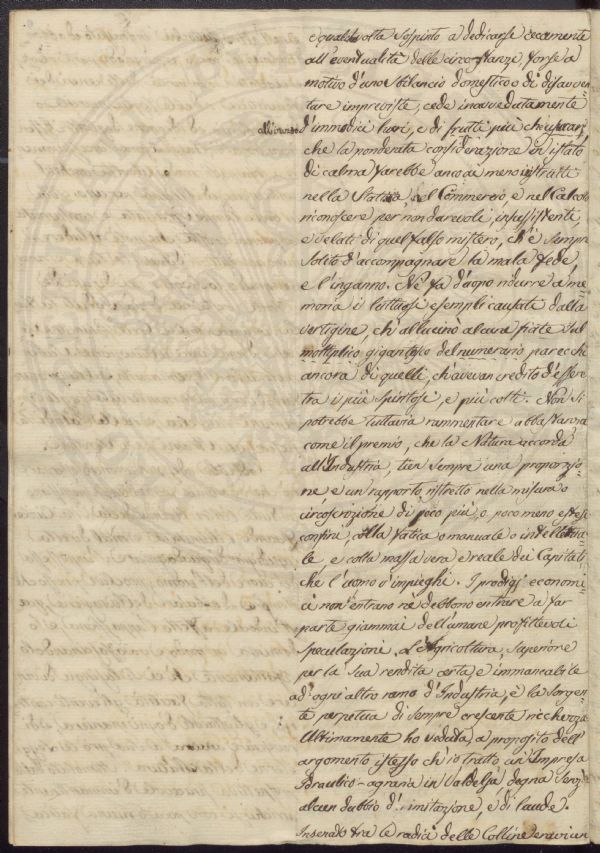 e qualche volta sospinto a dedicarsi
all'eventualità delle circostanze, forse a
motivo d'uno sbilancio domestico o di disavven-
ture impreviste, cede inavvedutamente
all'
d'immodici lucri, e di frutti più che usurari,
che la ponderata considerazione in istato
di calma farebbe anco ai meno istrutti
nella del Commercio, e nel Calcolo
riconoscere per non durevoli, insussistenti,
e velati di quel falso mistero, ch'è sempre
solito d'accompagnare la mala fede,
e l'inganno. Nè fa d'uopo ridurre a me-
moria i luttuosi esempli causati dalla
vertigine, ch'allucinò alcune fiate sul
moltiplico gigantesco del numerario parecchi
ancora di quelli, ch'avevan credito d'essere
tra i più spiritosi, e più colti. Non si
potrebbe tuttavia rammentare abbastanza
come il premio, che la Natura accorda
all'Industria, tien sempre una proporzio-
ne e un rapporto ristretto nella misura o
circoscrizione di poco più, o poco meno estesi
confini, colla fatica o manuale o intellettua-
le, e colla massa vera e reale dei Capitali,
che l'uomo v'impieghi. I prodigj economi-
ci non entrano nè debbono entrare a far
parte giammai dell'umane profittevoli
speculazioni. L'Agricoltura, superiore
per la sua rendita certa, e immancabile
ad ogni altro ramo d'Industria, è la sorgen-
te perpetua di sempre crescente ricchezza.
Ultimamente ho veduto, a proposito dell'
argomento istesso ch'io tratto un'Impresa
Idraulico-agraria in Valdelsa, degna senz'
alcun dubbio d'imitazione, e di laude.
Inserito tra le radici delle Colline eravi un